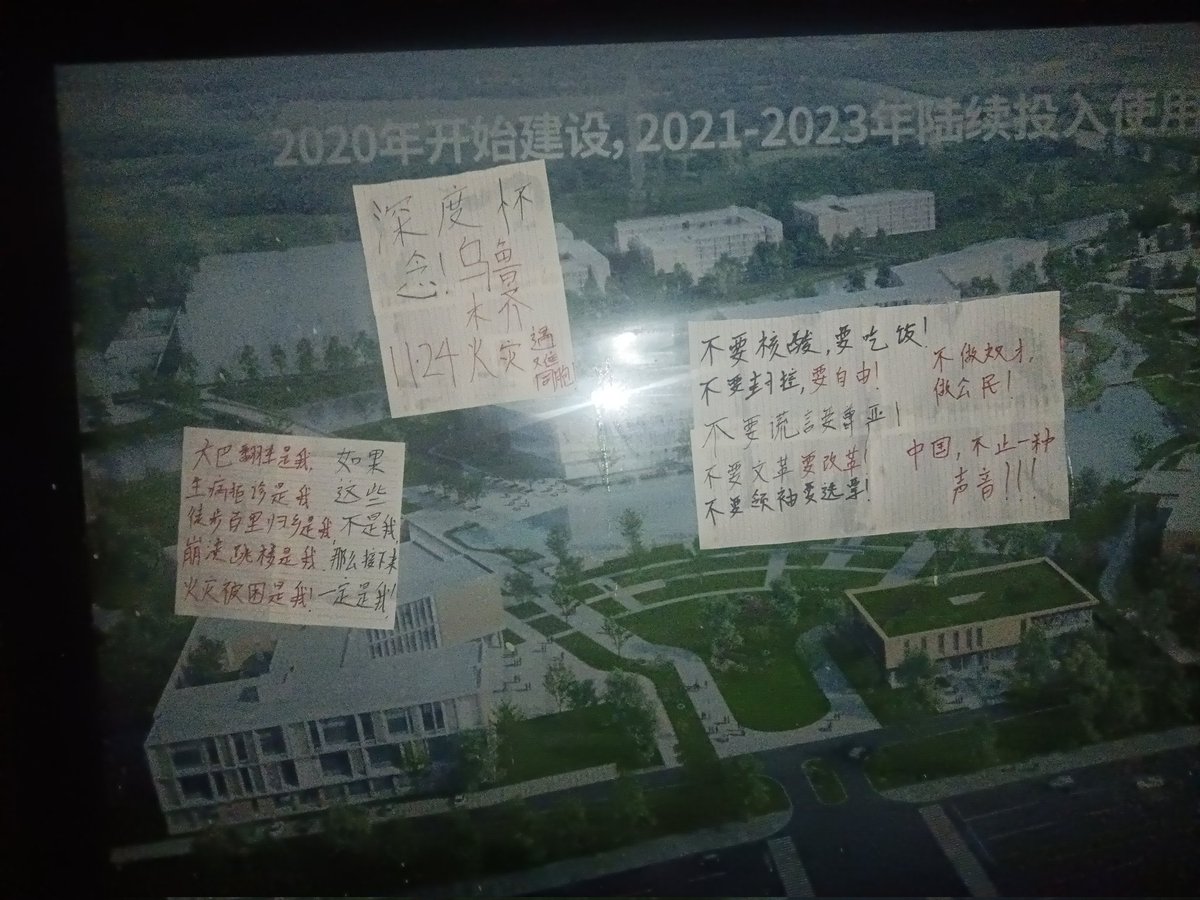 2020年开始建设, 2021-2023年陆续投入使用
深度怀
念!乌鲁
木齐
11·24火灾
遇
难
同胞!
不要核酸,要吃饭!
不要封控,要自由!
不要谎言要尊严!
不要文革要改革!
不要领袖要选票!
不做奴才,
做公民!
中国,不止一种
声音!!!
大巴翻车是我,
生病拒诊是我
徒步百里归乡是我,
崩溃跳楼是我,
火灾被困是我!
如果
这些
不是我
那么接下来
一定是我!